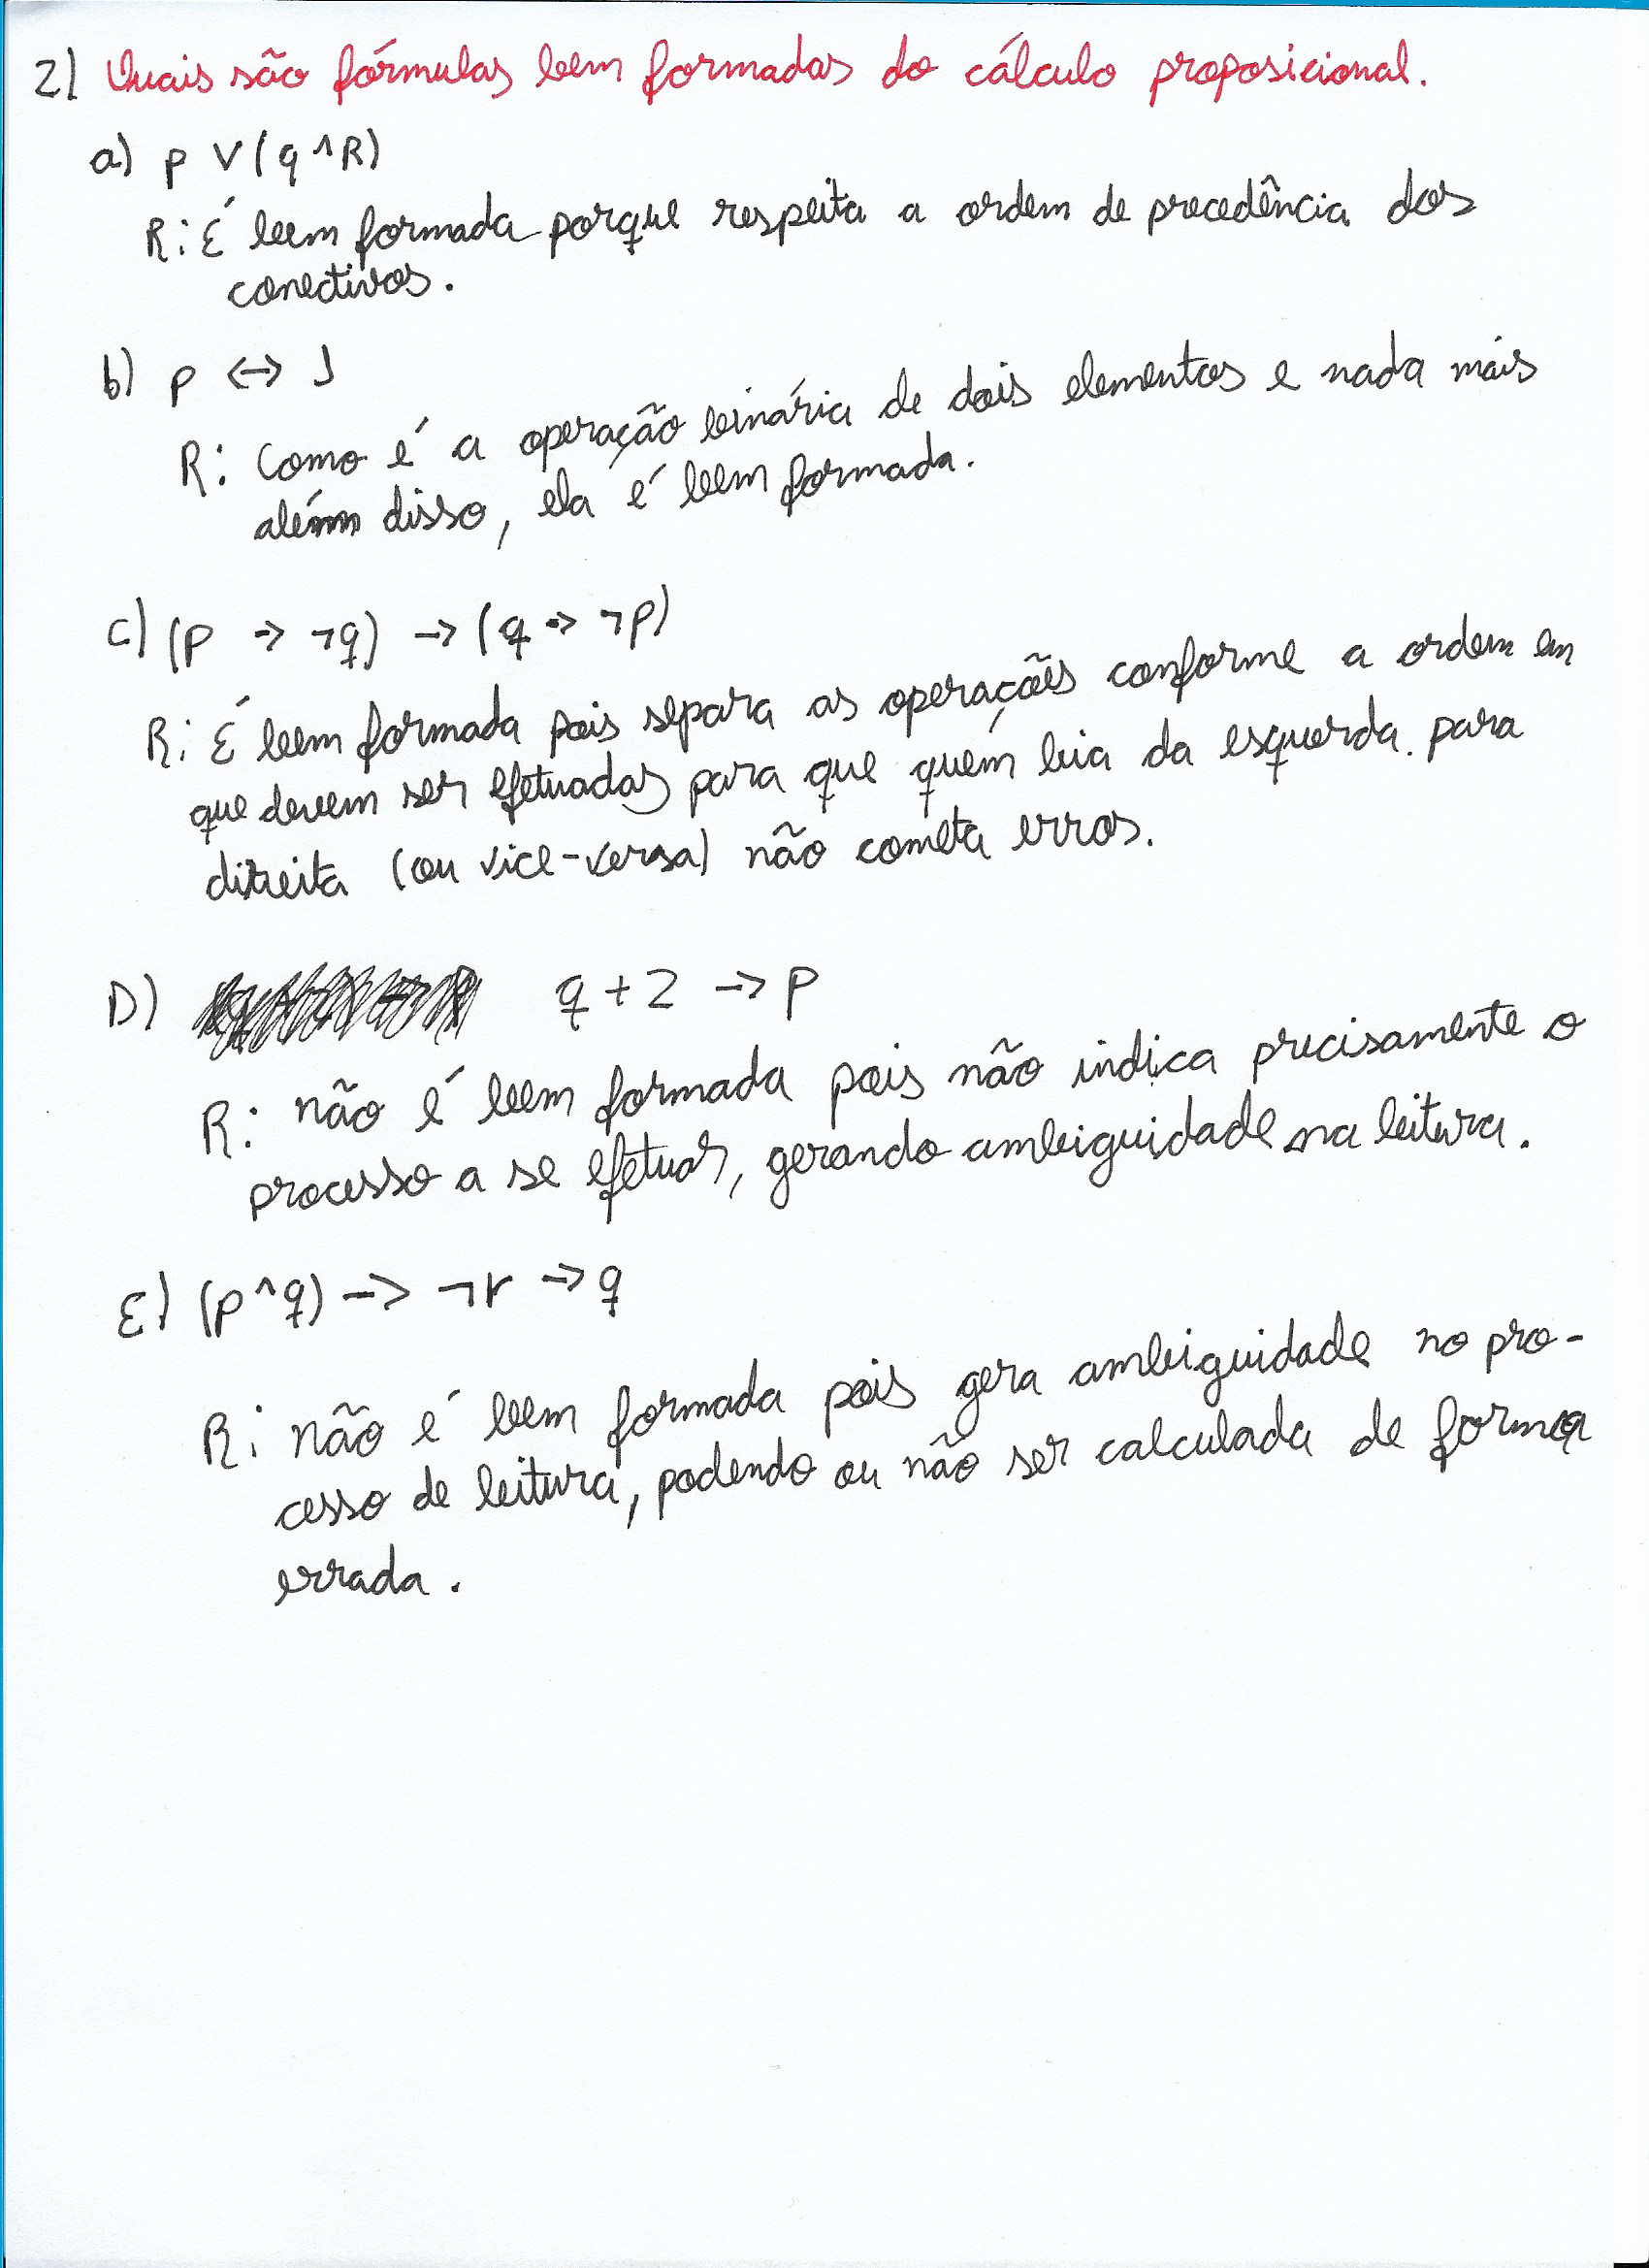 2) Quais são fórmulas bem formadas do cálculo proposicional.
a) p ∨ (q ^ R)
R: É bem formada porque respeita a ordem de precedência dos
conectivos.
b) p ↔ s
R: Como é a operação binária de dois elementos e nada mais
além disso, ela é bem formada.
c) (p → ¬q) → (q → ¬p)
R: É bem formada pois separa as operações conforme a ordem em
que devem ser efetuadas para que quem leia da esquerda para
direita (ou vice-versa) não cometa erros.
D) q + 2 → p
R: não é bem formada pois não indica precisamente o
processo a se efetuar, gerando ambiguidade na leitura.
E) (p ^ q) → ¬r → q
R: não é bem formada pois gera ambiguidade no pro-
cesso de leitura, podendo ou não ser calculada de forma
errada.